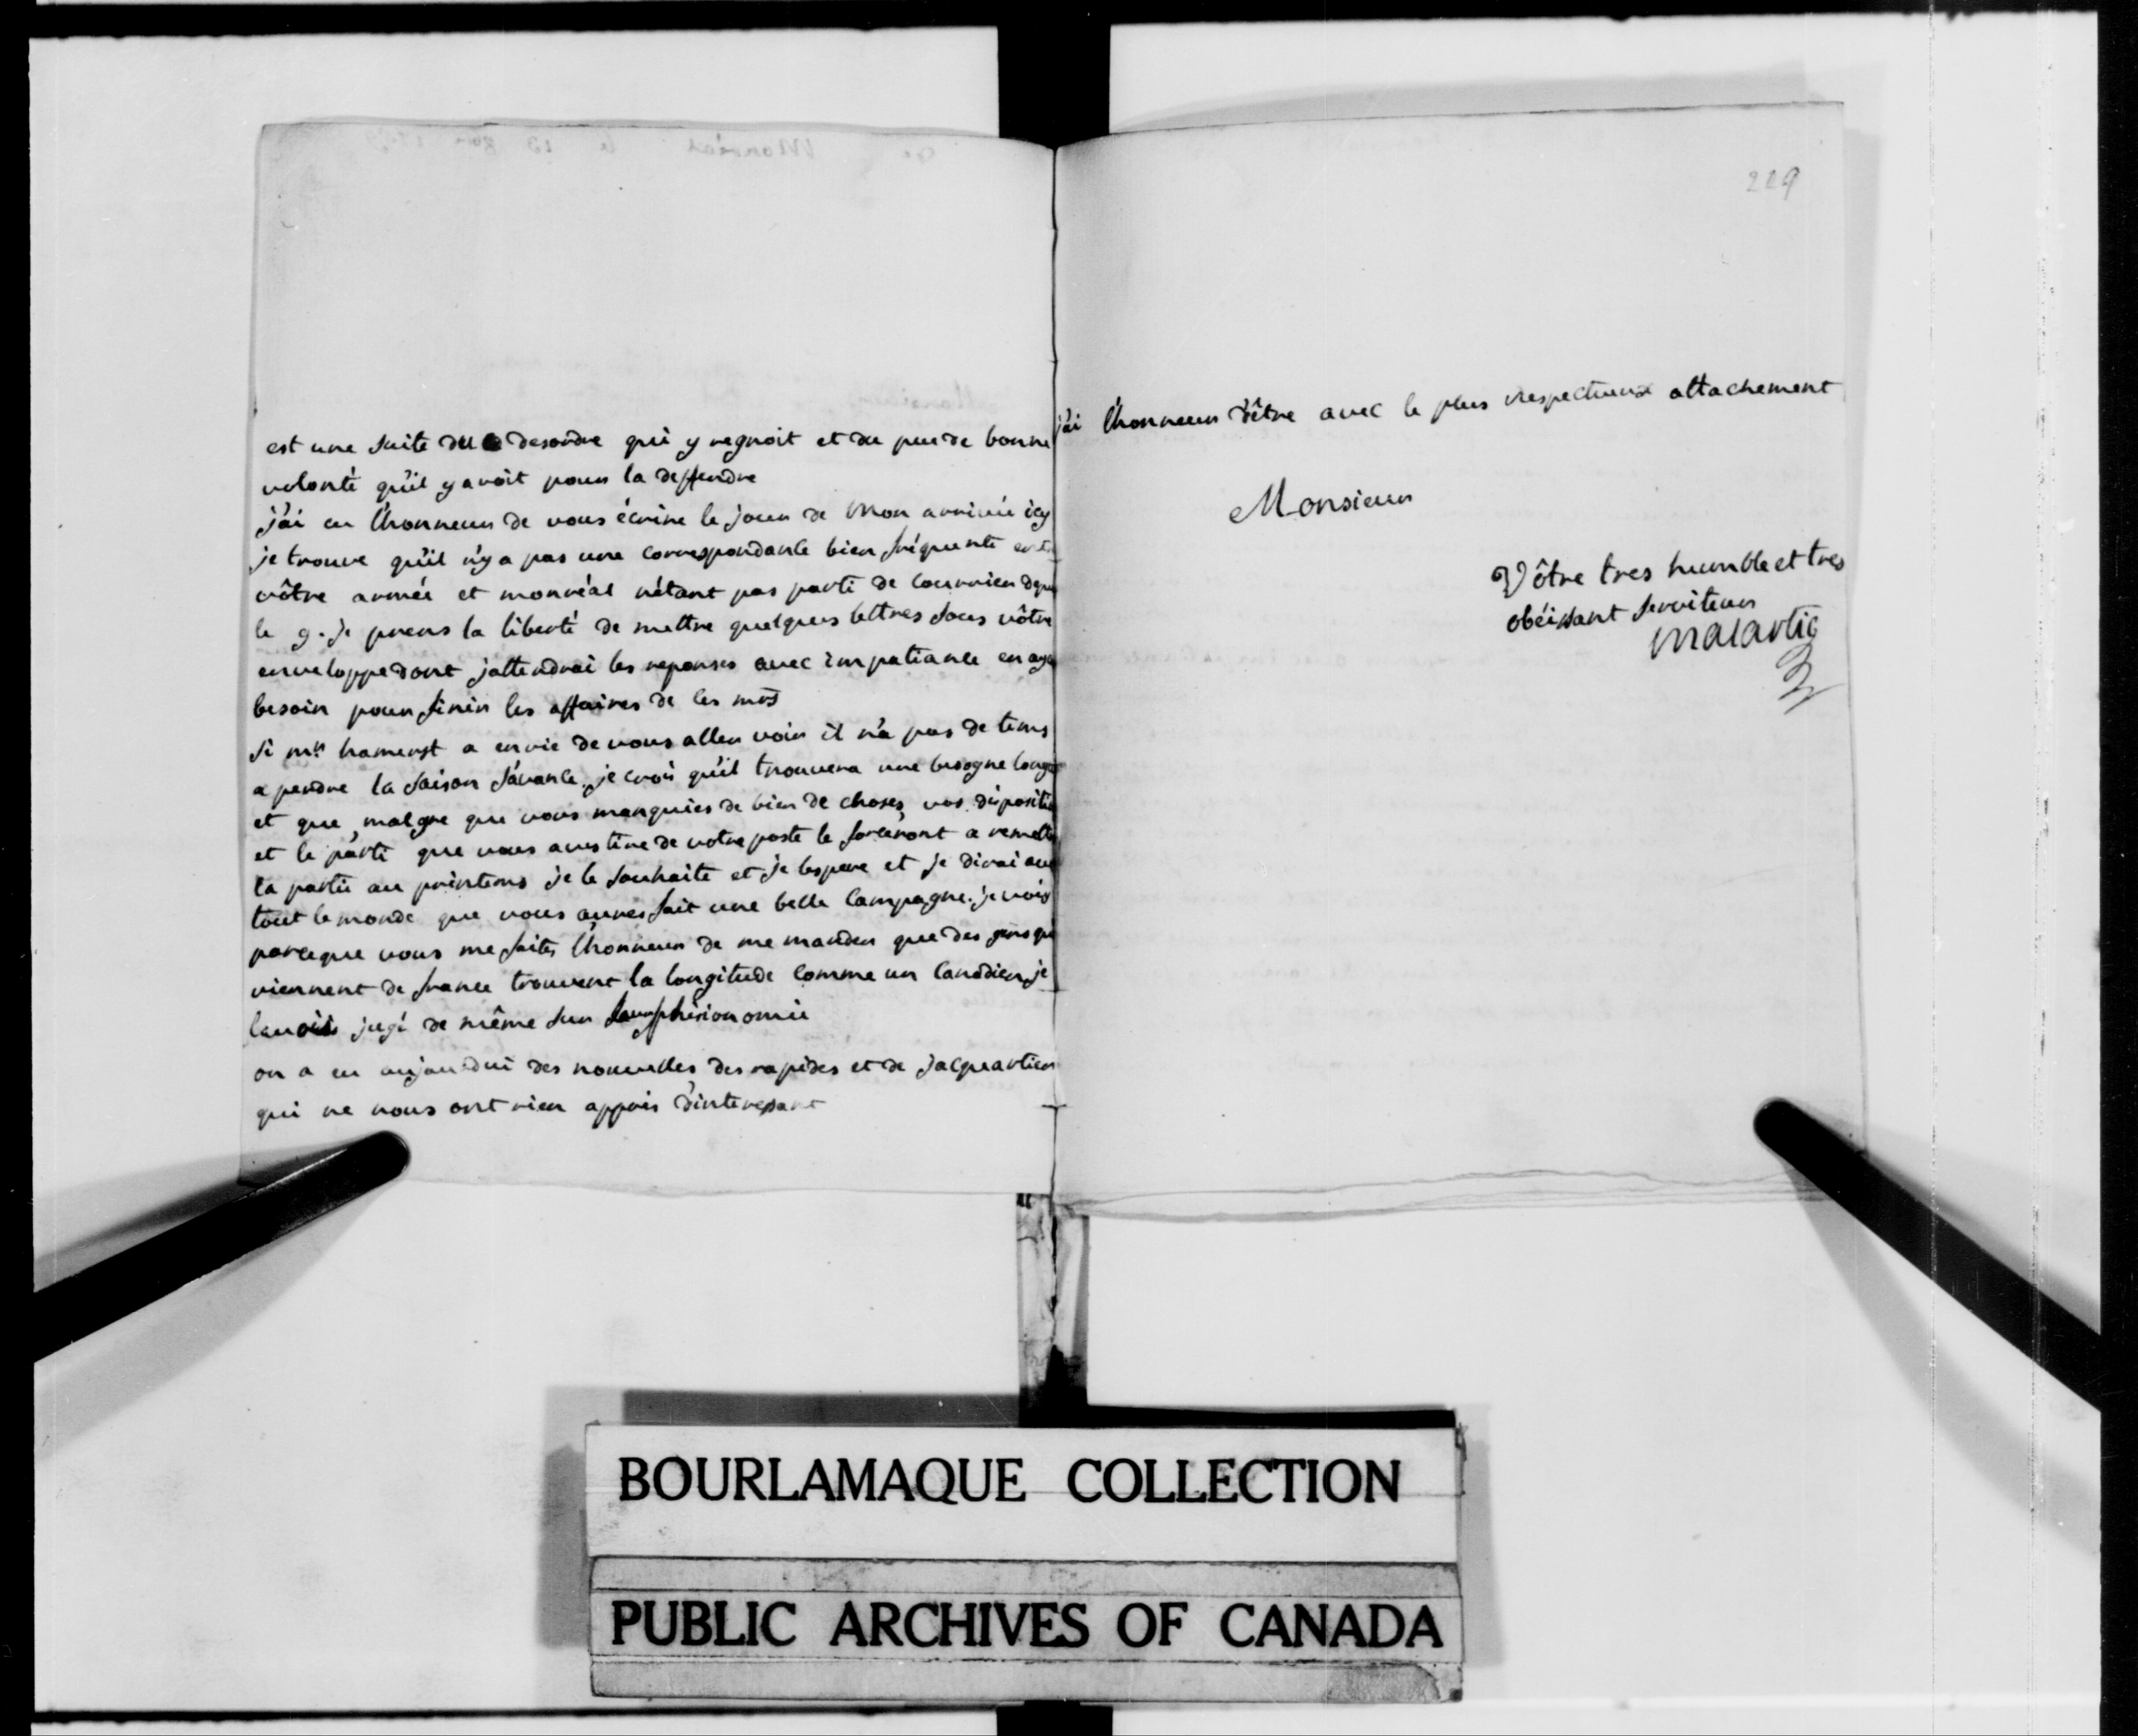 est une suite du desordre qui y regnoit et du peu de bonne
volonté qu'il y avoit pour la deffendre
j'ai eu l'honneur de vous écrire le jour de mon arrivée icy
je trouve qu'il n'y a pas une correspondance bien fréquente entre
vôtre armée et monréal n'étant pas parti de courrier depuis
le 9. je prens la liberté de mettre quelques lettres sous vôtre
enveloppe dont jattendrai les reponses avec impatiance en ayant
besoin pour finir les affaires de ces mrs
si mr hamerst a envie de vous aller voir il n'a pas de tems
a perdre la saison s'avance. je crois qu'il trouvera une besogne longue
et que malgre que vous manquies de bien de choses, vos dispositions
et le parti que vous aves tire de votre poste le forceront a remettre
la partie au printems je le souhaite et je lespere et je dirai avec
tout le monde que vous aures fait une belle campagne. je vois
parceque vous me faites l'honneur de me mander que des gens qui
viennent de france trouvent la longitude comme un canadien, je
lavois jugé de même sur phisionomie
on a eu aujourdui des nouvelles des rapides et de jacquartier
qui ne nous ont rien appris d'interessant
229
j'ai l'honneur d'être avec le plus respectueux attachement
Monsieur
Vôtre tres humble et tres
obéissant serviteur
Malartic
BOURLAMAQUE COLLECTION
PUBLIC ARCHIVES OF CANADA